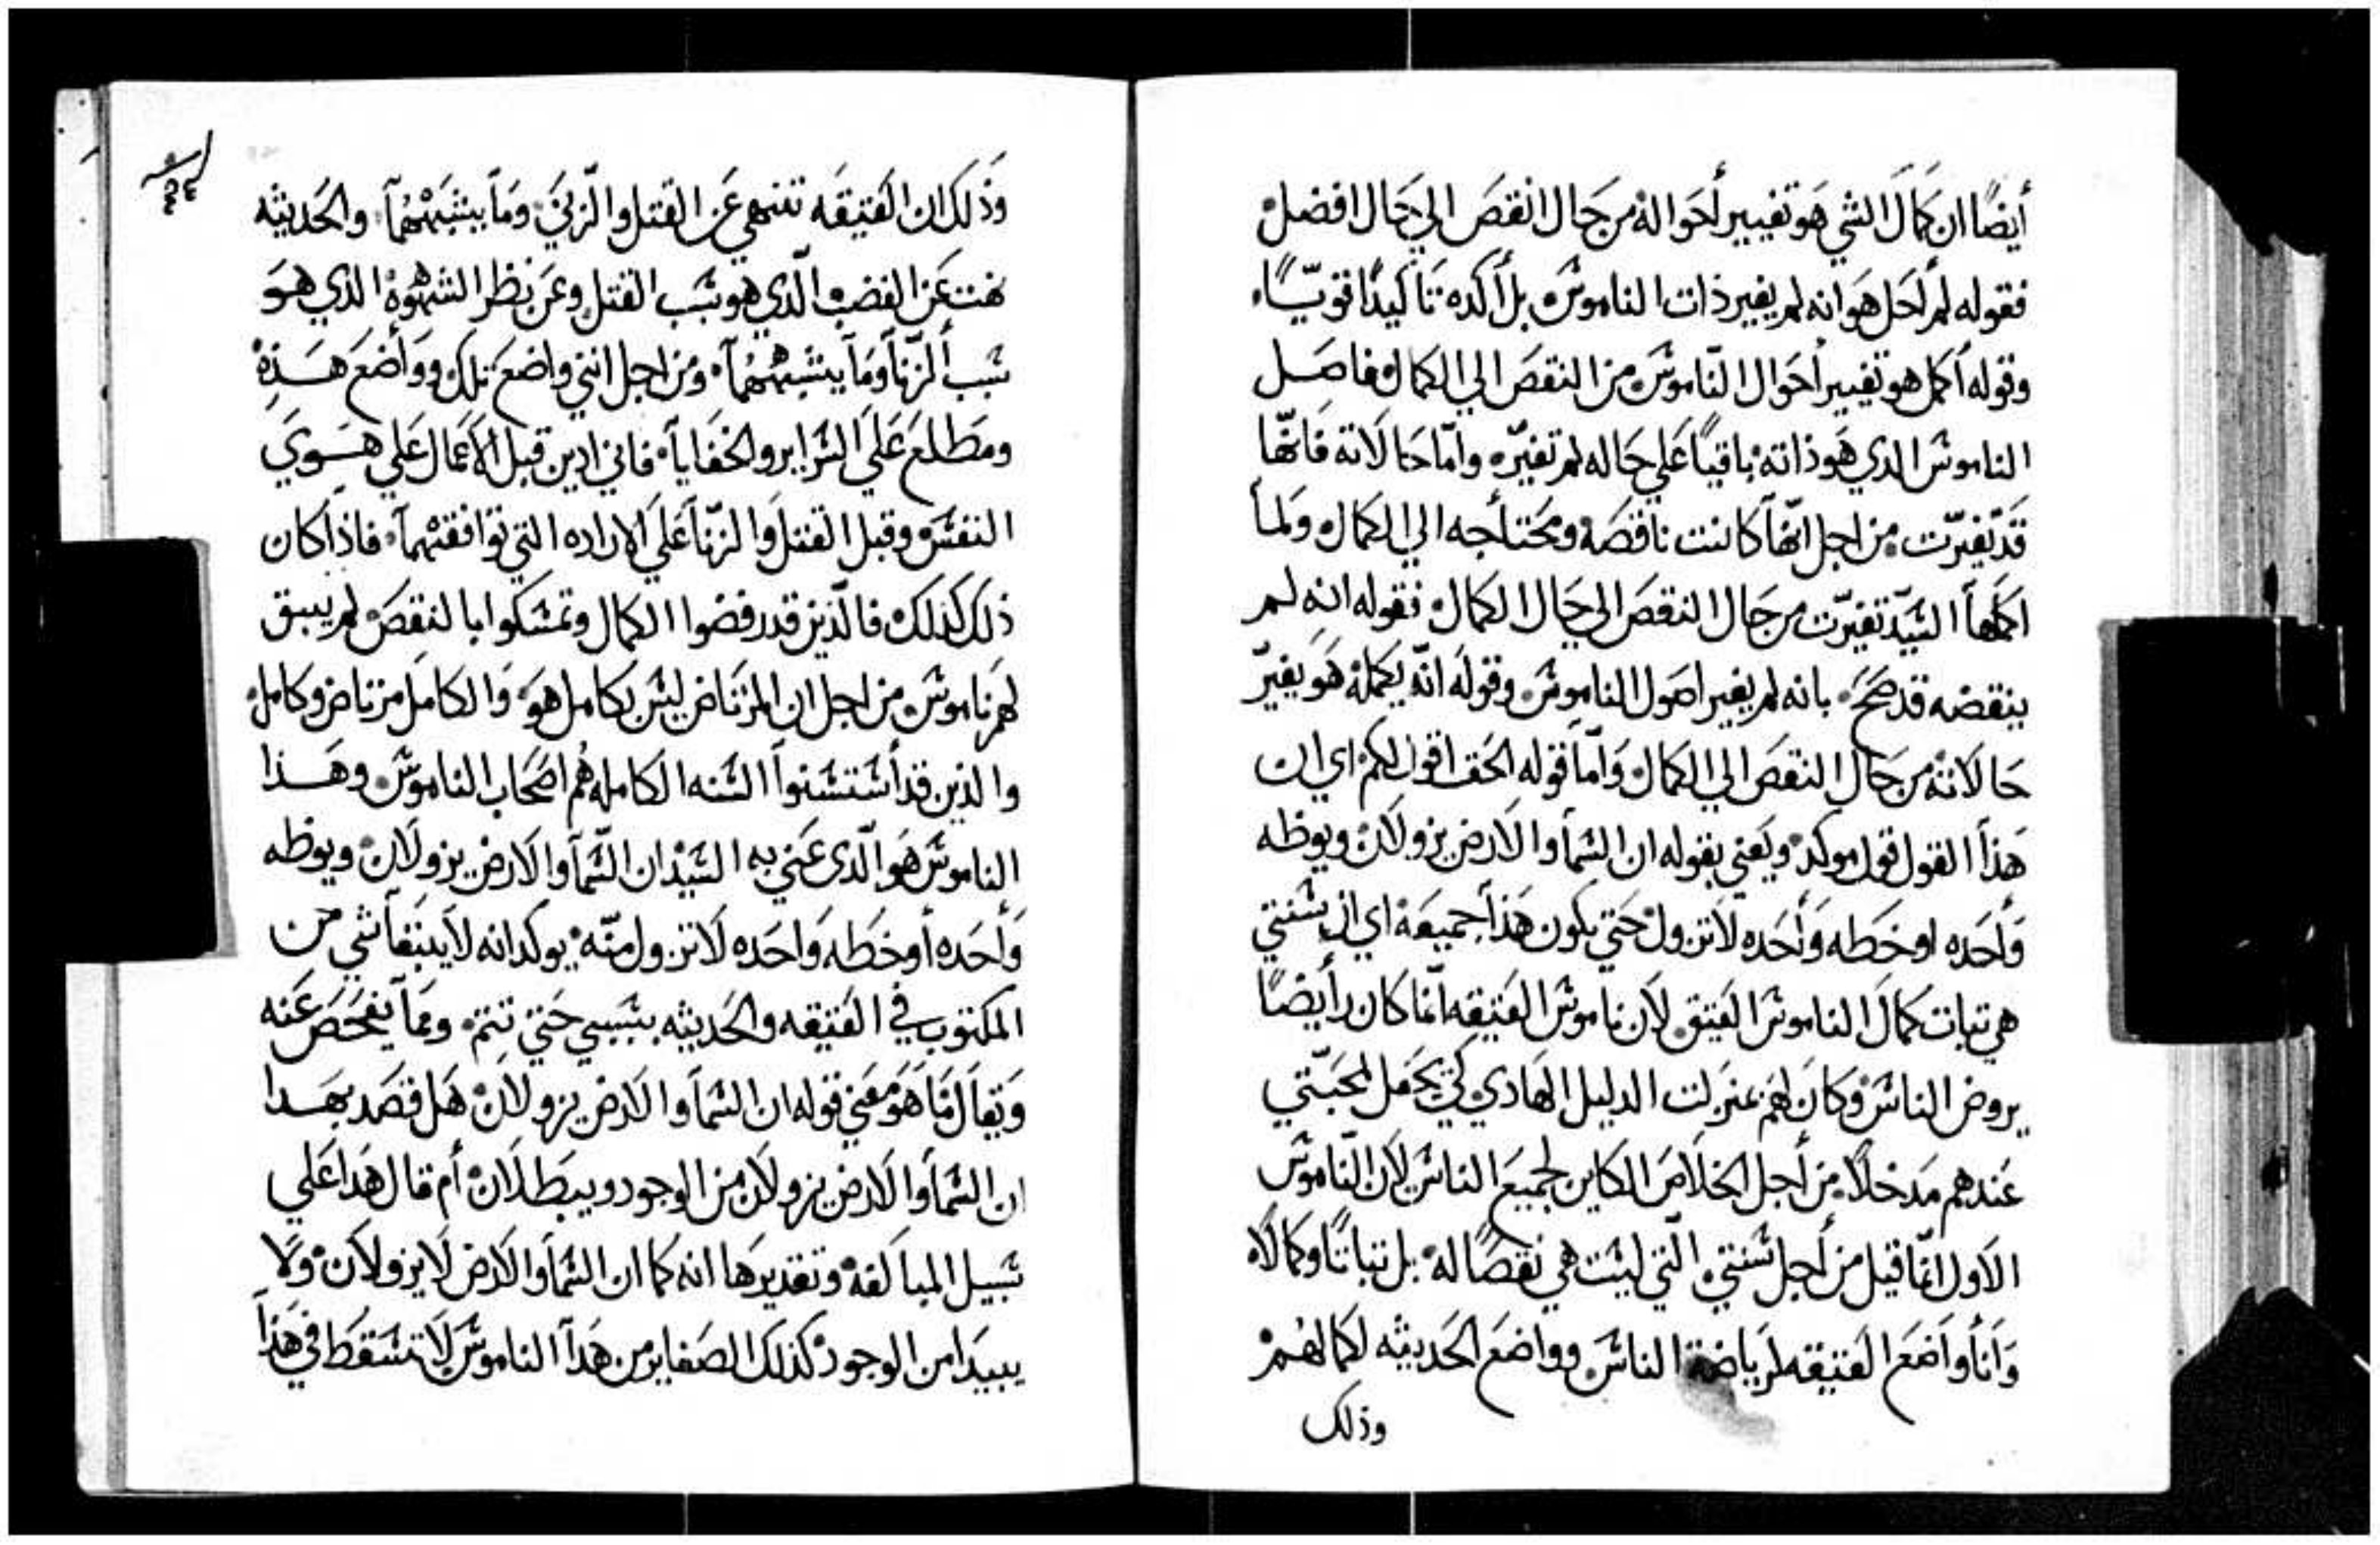 أيضًا ان كمالَ الشي هو تغيير أحواله من حال انقص الي حال افضل
فقوله لم احل هو انه لم يغير ذات الناموس بل أكده تاكيدًا قويًّا
وقوله اكمل هو تغيير احوال النّاموس من النقص الي الكمال فاصل
الناموس الذي هو ذاته باقيًا علي حاله لم تغيّره وامّا حالاته فانّها
قد تغيرّت من اجل انّها كانت ناقصه ومحتاجه الي الكمال ولما
اكملها السّيّد تغيرّت من حال النقص الي حال الكمال فقوله انه لم
ينقضه قد صحَّ بانه لم يغير اصول الناموس وقوله انّه يكمله هو يغيرّ
حالاته من حال النقص الي الكمال وامّا قوله الحق اقول لكم اي ان
هذا القول قول موكد ويعني بقوله ان السما والارض يزولان ويوطه
وأحده او خطه وأحده لا تزول حتي يكون هذا جميعه اي ان سنتي
هي تبات كمال الناموس العتيق لان ناموس العتيقه انّما كان رأيضًا
يروض الناس وكان لهم بمنزلت الدليل الهادي كي يجعل لمحبّتي
عندهم مدخلًا من أجل الخلاص الكاين لجميع الناس لان النّاموس
الاول انمّا قيل من أجل سنتي التي ليست هي نقصًا له بل تباتًا وكمالًا
وانأ واضع العتيقه لرياضة الناس وواضع الحديثه لكمالهم
وذلك
وذلك ان العتيقه تنهي عن القتل والزّني وما يشبههما والحديثه
نهت عن الغضب الّذي هو سبب القتل وعن نظر الشهوة الذي هو
سبب الزّنا وما يشبههما ومن اجل انني واضع تلك وواضع هذه
ومطلع علي السراير والخفايا فاني ادين قبل الاعمال علي هوي
النفس وقبل القتل والزّنا علي الاراده التي توافقهما فاذا كان
ذلك كذلك فالّذين قد رفضوا الكمال وتمسكوا بالنقص لم يبق
لهم ناموس من اجل ان المرتاض ليس بكامل هو والكامل مرتاض وكامل
والذين قد أستسنوا السنه الكامله هم اصحاب الناموس وهذا
الناموس هو الّذي عني به السّيّد ان السّما والارض يزولان ويوطه
وأحده أو خطه واحده لا تزول منّه يوكد انه لا يبقا شي من
المكتوب في العتيقه والحديثه بسببي حتي تتم ومما يفحص عنه
ويقال ما هو معني قوله ان السما والارض يزولان هل قصد بهدا
ان السما والارض يزولان من الوجود ويبطلان أم قال هدا علي
سبيل المبالغه وتقديرها انه كما ان السما والارض لا يزولان ولا
يبيدا من الوجود كذلك الصغاير من هدا الناموس لا تسقط في هذا